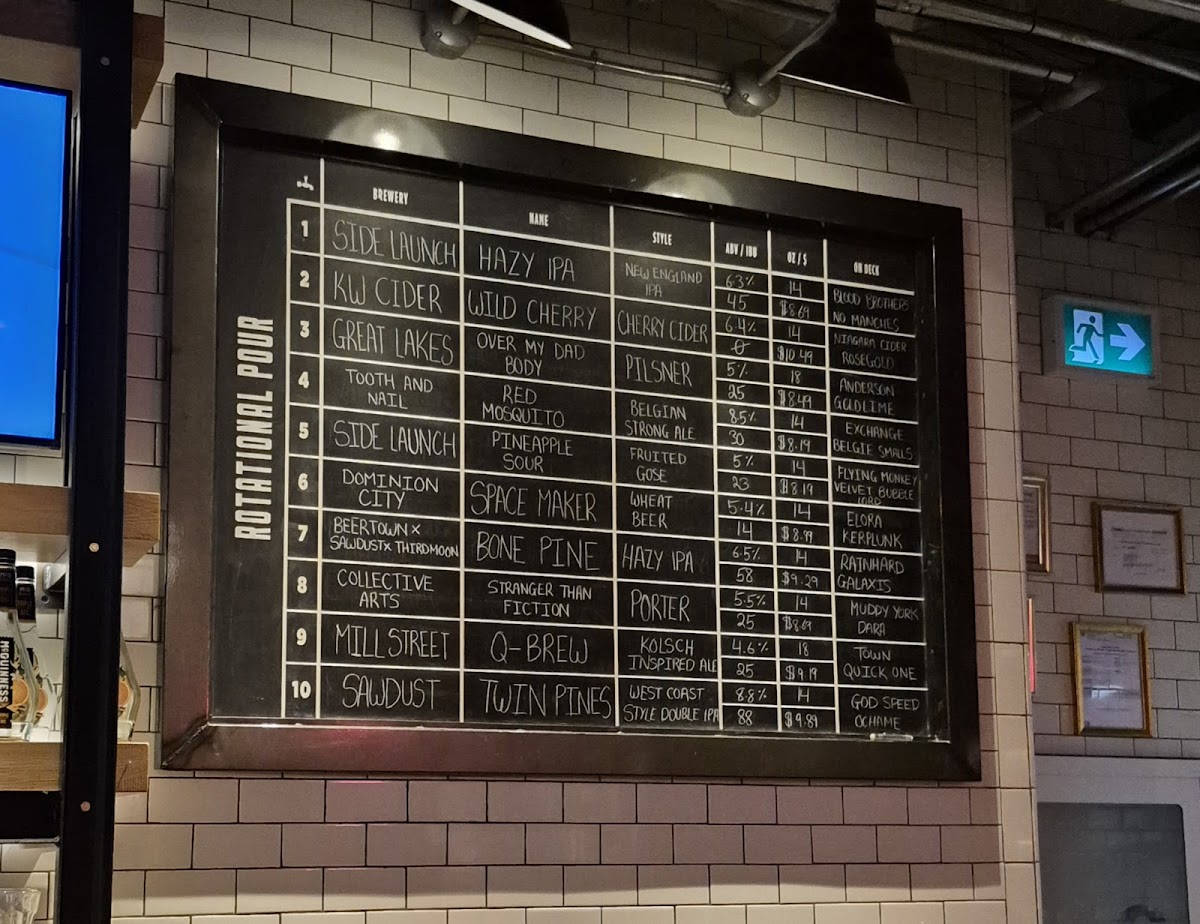 ROTATIONAL POUR
BREWERY NAME STYLE ABV / IBU OZ / $ ON DECK
1 SIDE LAUNCH HAZY IPA NEW ENGLAND IPA 6.3% 45 14 $8.69 BLOOD BROTHERS NO MANCHES
2 KW CIDER WILD CHERRY CHERRY CIDER 6.4% 0 14 $10.49 NIAGARA CIDER ROSEGOLD
3 GREAT LAKES OVER MY DAD BODY PILSNER 5% 25 18 $8.49 ANDERSON GOLDLIME
4 TOOTH AND NAIL RED MOSQUITO BELGIAN STRONG ALE 8.5% 30 14 $8.19 EXCHANGE BELGIE SMALLS
5 SIDE LAUNCH PINEAPPLE SOUR FRUITED GOSE 5% 23 14 $8.19 FLYING MONKEY VELVET BUBBLE LORD
6 DOMINION CITY SPACE MAKER WHEAT BEER 5.4% 14 14 $8.99 ELORA KERPLUNK
7 BEERTOWN X SAWDUST X THIRD MOON BONE PINE HAZY IPA 6.5% 58 14 $9.29 RAINHARD GALAXIS
8 COLLECTIVE ARTS STRANGER THAN FICTION PORTER 5.5% 25 14 $8.69 MUDDY YORK DARA
9 MILL STREET Q-BREW KOLSCH INSPIRED ALE 4.6% 25 18 $9.19 TOWN QUICK ONE
10 SAWDUST TWIN PINES WEST COAST STYLE DOUBLE IPA 8.8% 88 14 $9.89 GOD SPEED OCHAME
McGUINNESS